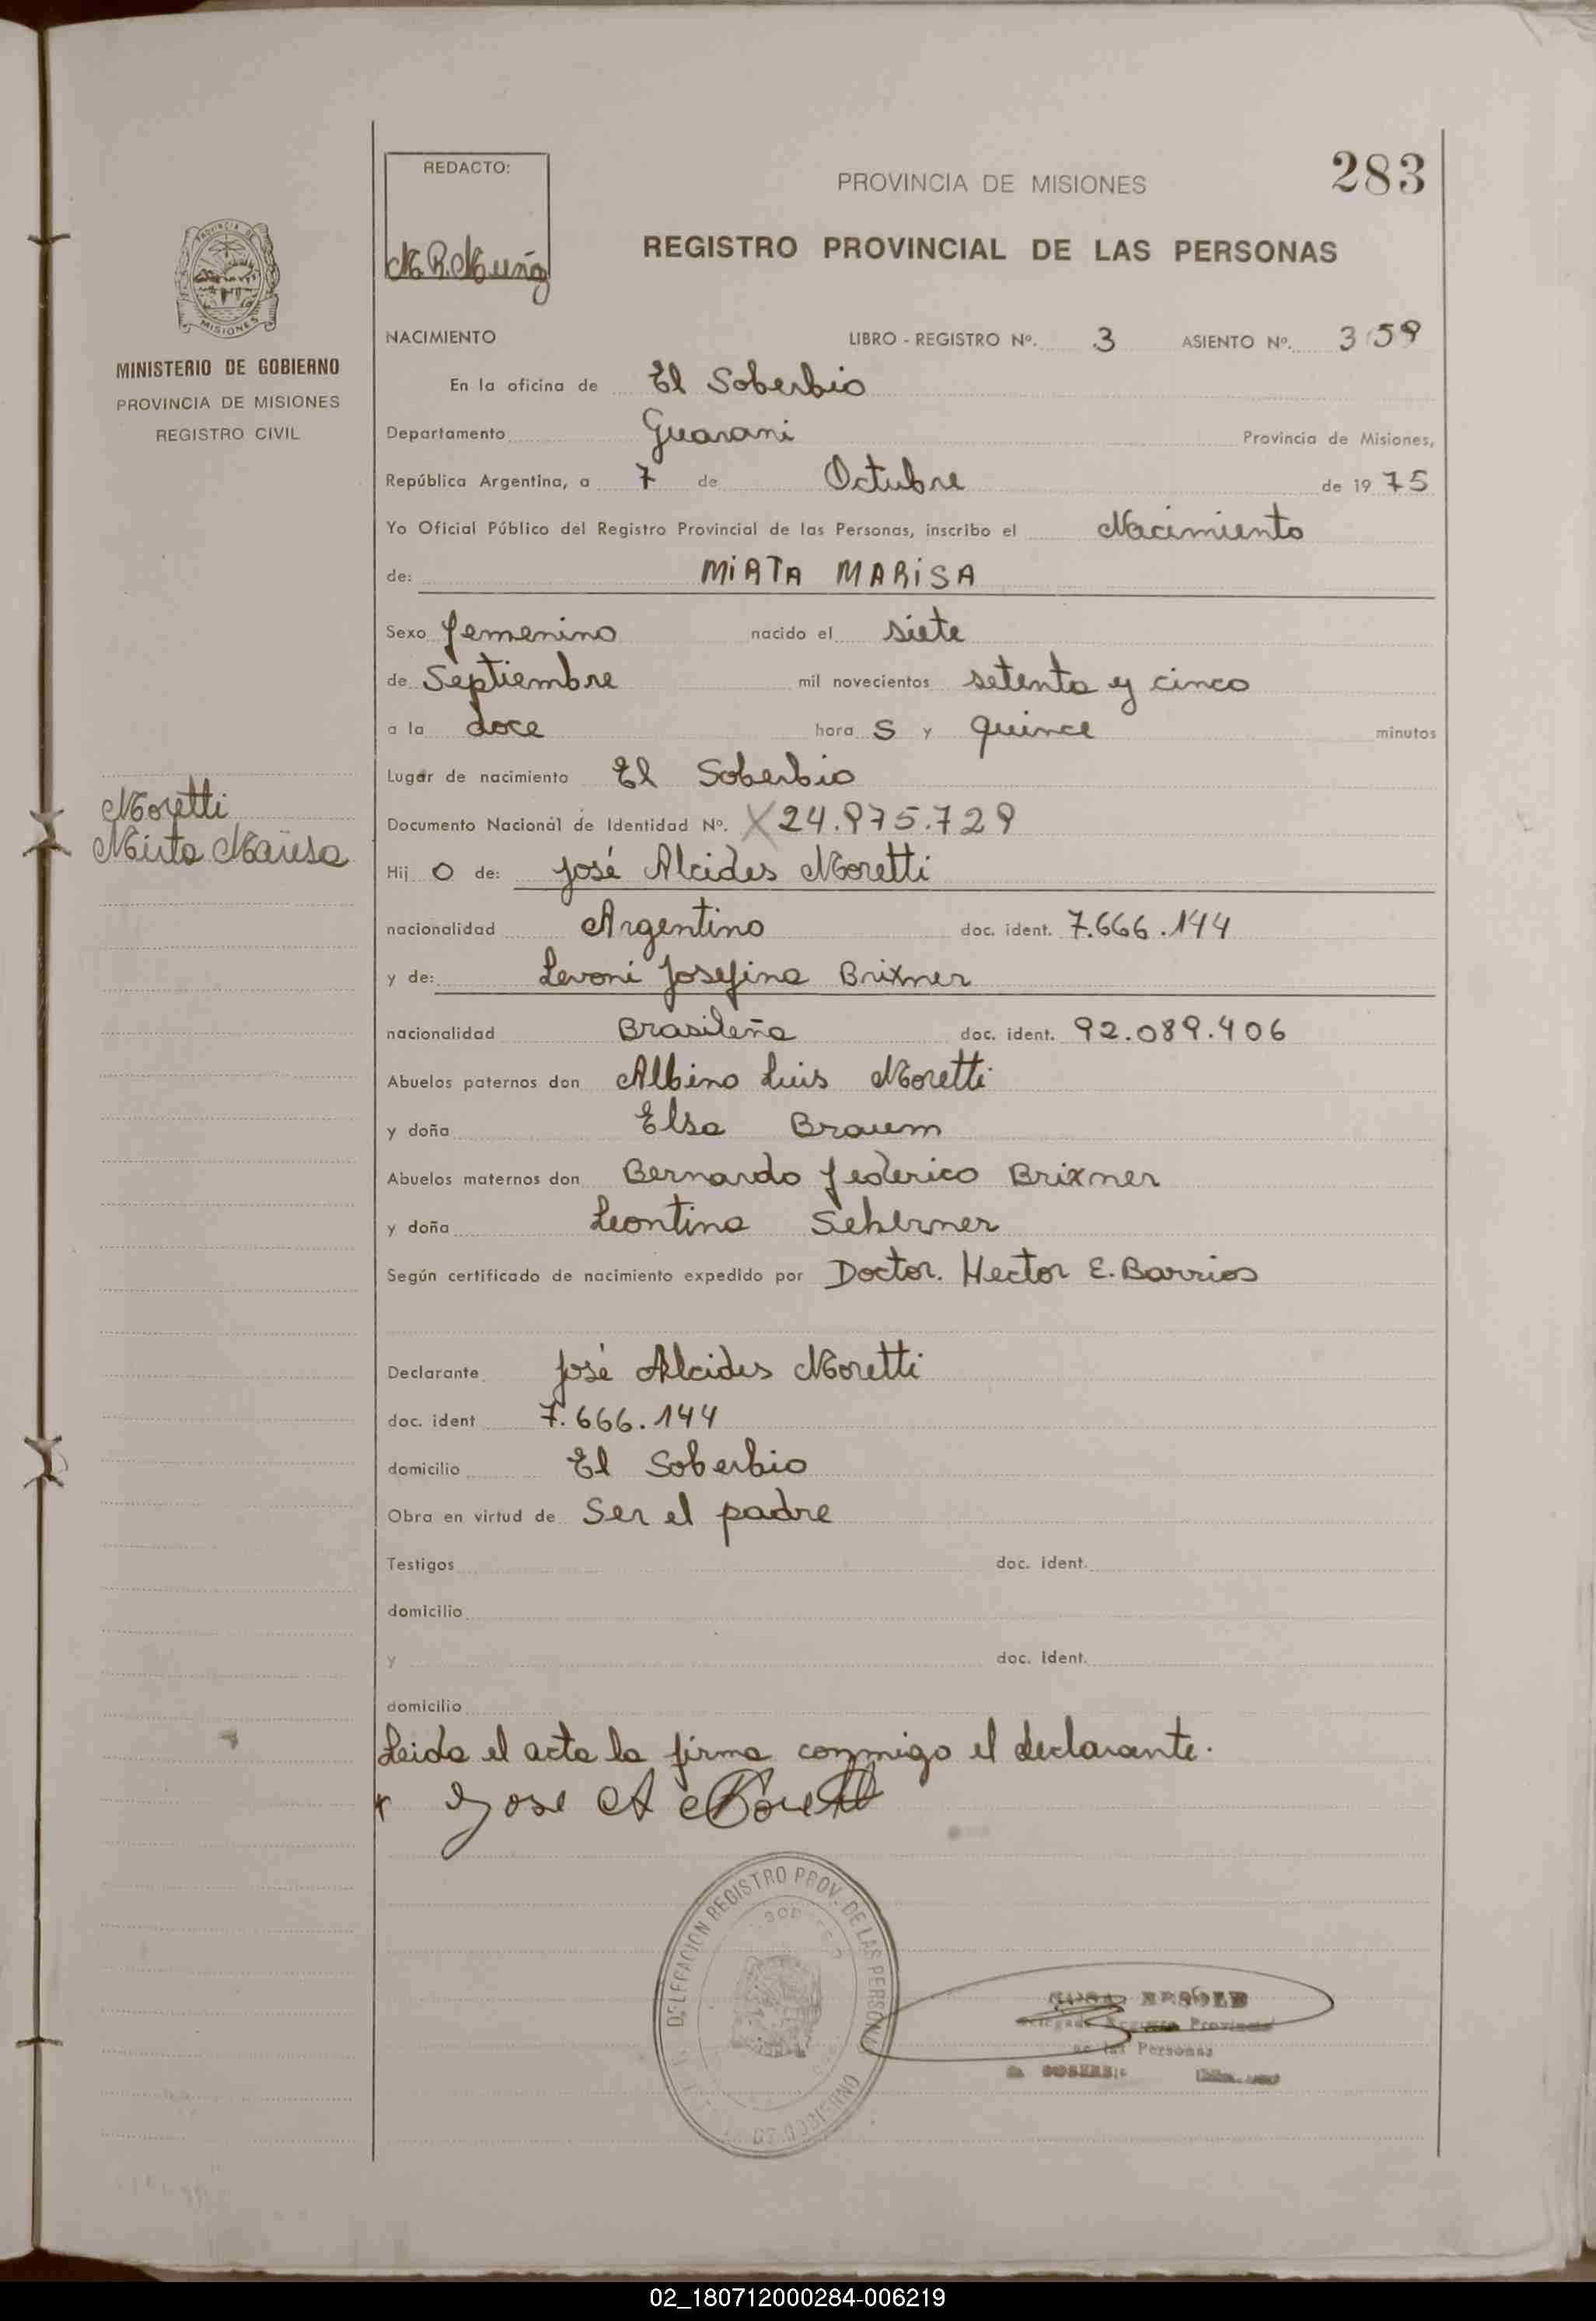 283
REDACTO:
M. R. Muñoz
PROVINCIA DE MISIONES
REGISTRO PROVINCIAL DE LAS PERSONAS
PROVINCIA DE
MISIONES
MINISTERIO DE GOBIERNO
PROVINCIA DE MISIONES
REGISTRO CIVIL
NACIMIENTO LIBRO - REGISTRO Nº. 3 ASIENTO Nº. 359
En la oficina de El Soberbio
Departamento Guarani Provincia de Misiones,
República Argentina, a 7 de Octubre de 1975
Yo Oficial Público del Registro Provincial de las Personas, inscribo el Nacimiento
de: MiRTA MARiSA
Sexo femenino nacido el siete
de Septiembre mil novecientos setenta y cinco
a la doce hora s y quince minutos
Lugar de nacimiento El Soberbio
Moretti
Mirta Marisa
Documento Nacional de Identidad Nº. X 24.975.729
Hij o de: José Alcides Moretti
nacionalidad Argentino doc. ident. 7.666.144
y de: Levoni Josefina Brixner
nacionalidad Brasileña doc. ident. 92.089.406
Abuelos paternos don Albino Luis Moretti
y doña Elsa Braum
Abuelos maternos don Bernardo Federico Brixner
y doña Leontina
Según certificado de nacimiento expedido por Doctor. Hector E. Barrios
Declarante José Alcides Moretti
doc. ident 7.666.144
domicilio El Soberbio
Obra en virtud de Ser el padre
Testigos doc. ident.
domicilio
y doc. ident.
domicilio
Leida el acta la firma conmigo el declarante.
x Jose A Moretti
DELEGACION REGISTRO PROV. DE LAS PERSONAS
Delegado Registro Provincial
de las Personas
02_180712000284-006219